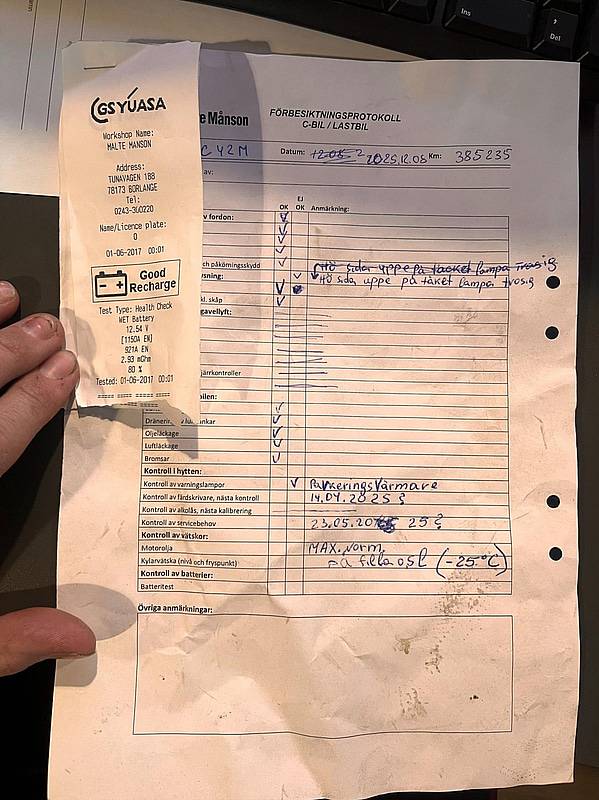 GS YUASA
Workshop Name:
MALTE MANSON
Address:
TUNAVAGEN 188
78173 BORLANGE
Tel:
0243-3L0220
Name/Licence plate:
0
01-06-2017 00:01
Good
Recharge
Test Type: Health Check
WET Battery
12.54 V
[1150A EN]
921A EN
2.93 mOhm
80 %
Tested: 01-06-2017 00:01
e Månson
FÖRBESIKTNINGSPROTOKOLL
C-BIL / LASTBIL
CY2M Datum: 2025.12.08 Km: 385235
av:
OK EJ OK Anmärkning:
v fordon:
och påkörningsskydd
Hö sida uppe på taket lampa trasig
sning: Hö sida uppe på taket lampa trasig
kl. skåp
gavellyft:
järrkontroller
ilen:
Dränering luftankar
Oljeläckage
Luftläckage
Bromsar
Kontroll i hytten:
Kontroll av varningslampor Parkeringsvärmare
Kontroll av färdskrivare, nästa kontroll 14.04.2025 ?
Kontroll av alkolås, nästa kalibrering
Kontroll av servicebehov 23.05.20 25 ?
Kontroll av vätskor:
Motorolja MAX. Norm.
Kylarvätska (nivå och fryspunkt) på fylla 0,5L (-25°C)
Kontroll av batterier:
Batteritest
Övriga anmärkningar: